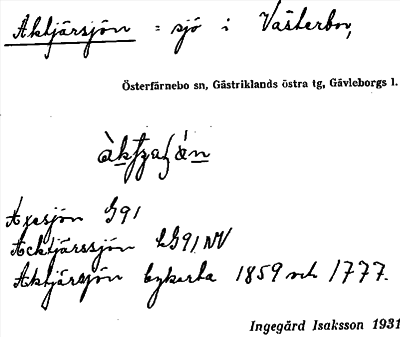 Aktjärsjön = sjö i Västerbor,
Österfärnebo sn, Gästriklands östra tg, Gävleborgs l.
Axesjön G91
Acktjärssjön LG91NV
Aktjärsjön bykarta 1859 och 1777.
Ingegärd Isaksson 1931